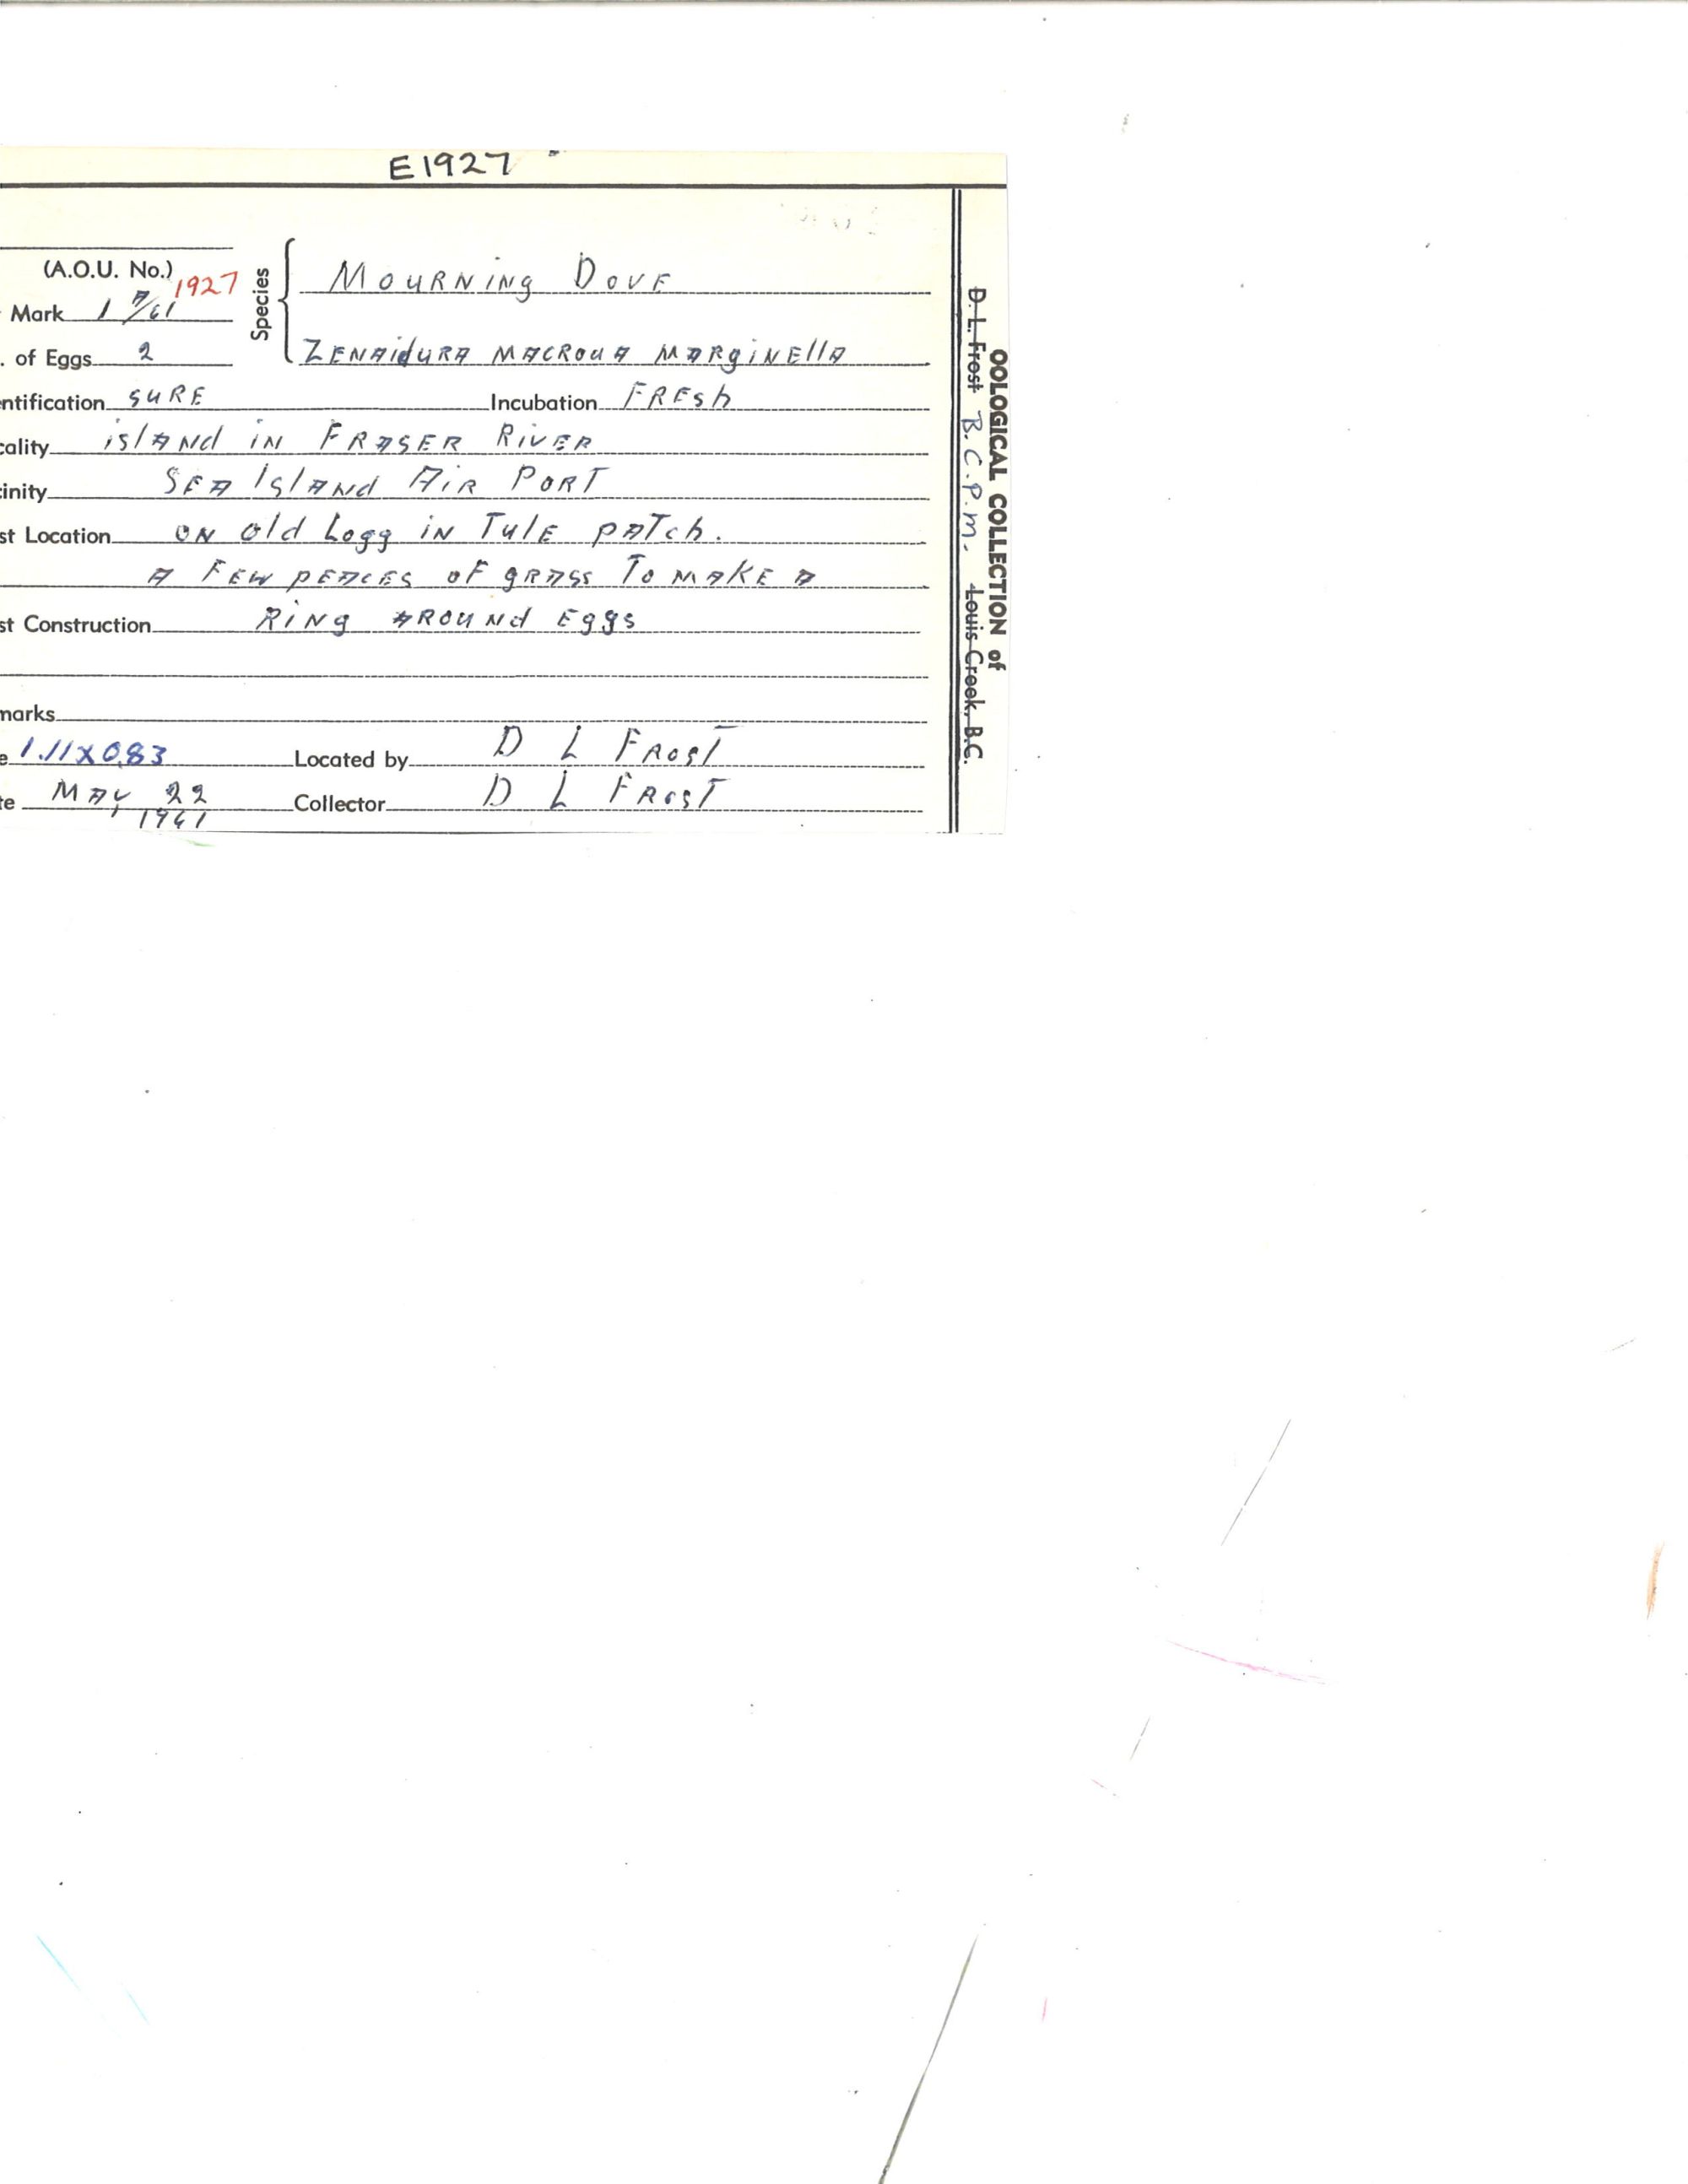 E1927
(A.O.U. No.) 1927
Mark 1 A/61
Species
MOURNiNg DOVE
. of Eggs 2
ZENAidURA MACROUA MARgiNEllA
ntification SURE Incubation FRESh
cality islANd iN FRASER RiVER
inity SEA IslANd AiR PORT
st Location ON Old Logg iN TulE pATch.
A FEW PEACES OF gRASS To MAKE A
st Construction RiNg AROUNd Eggs
marks
e 1.11X0.83 Located by D L FROST
te MAy 22 1961 Collector D L FROST
OOLOGICAL COLLECTION of
D. L. Frost B.C.P.M. Louis Creek, B.C.